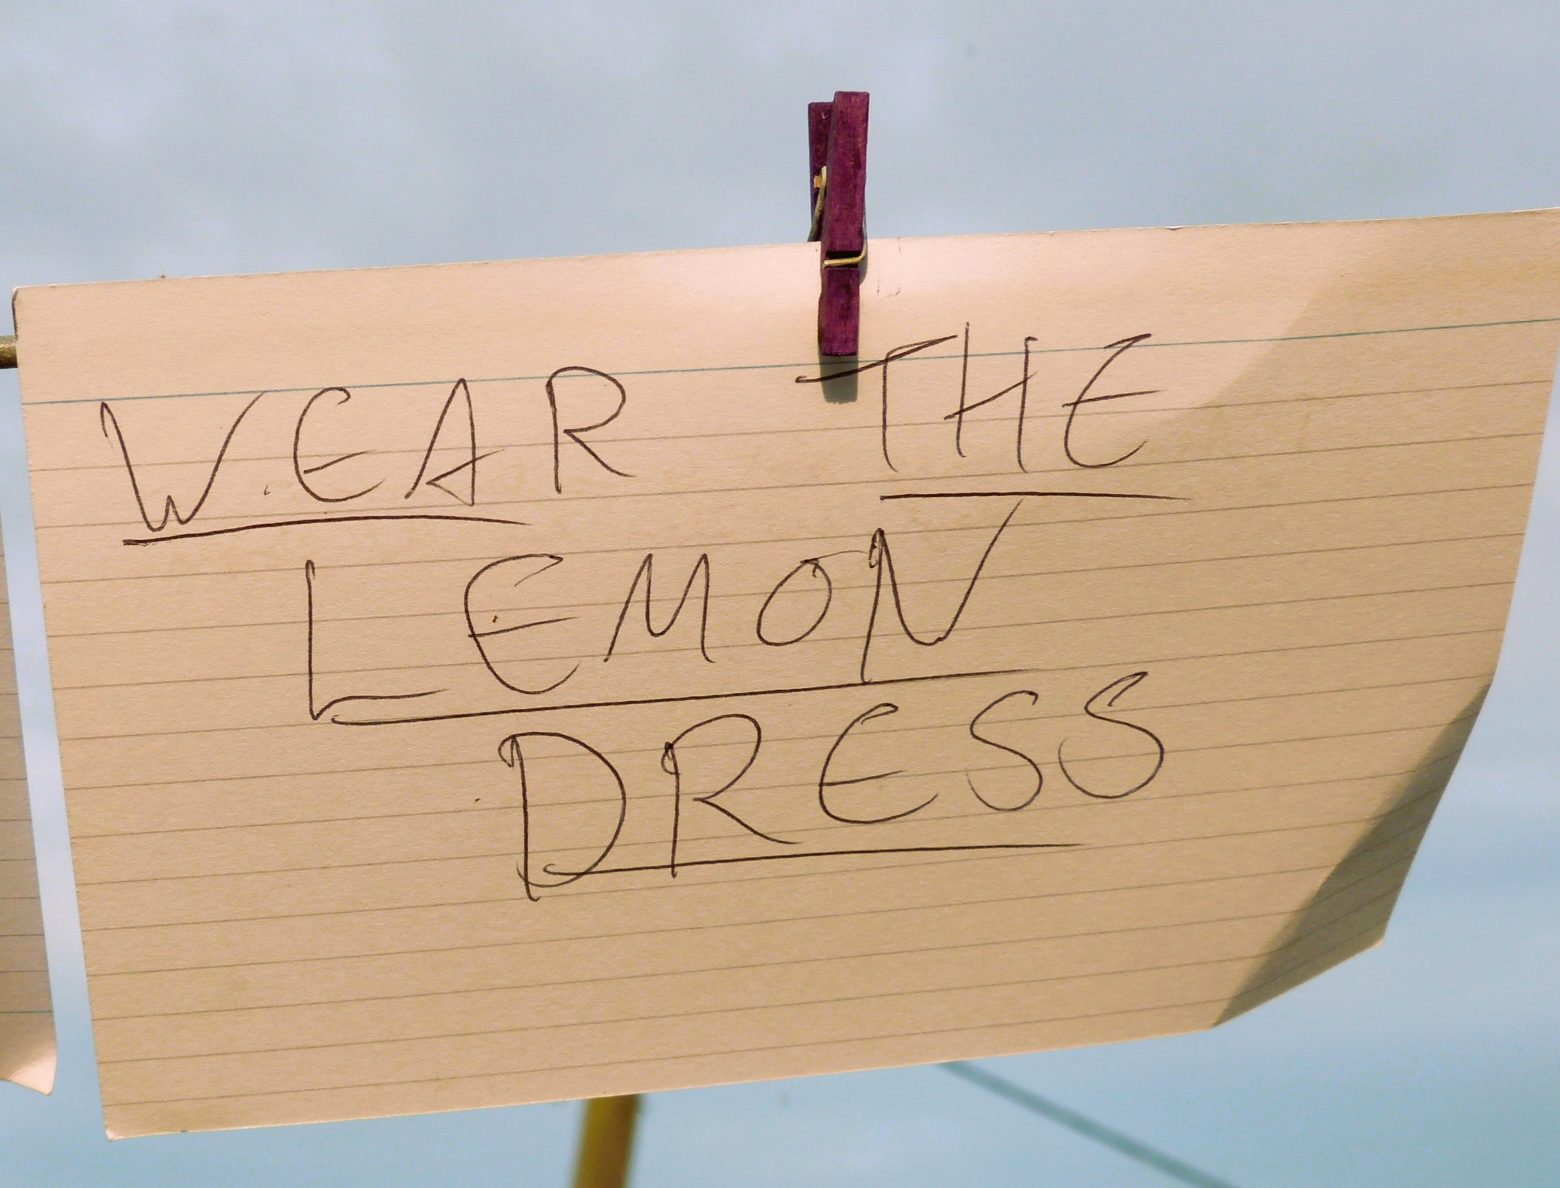 WEAR THE
LEMON
DRESS